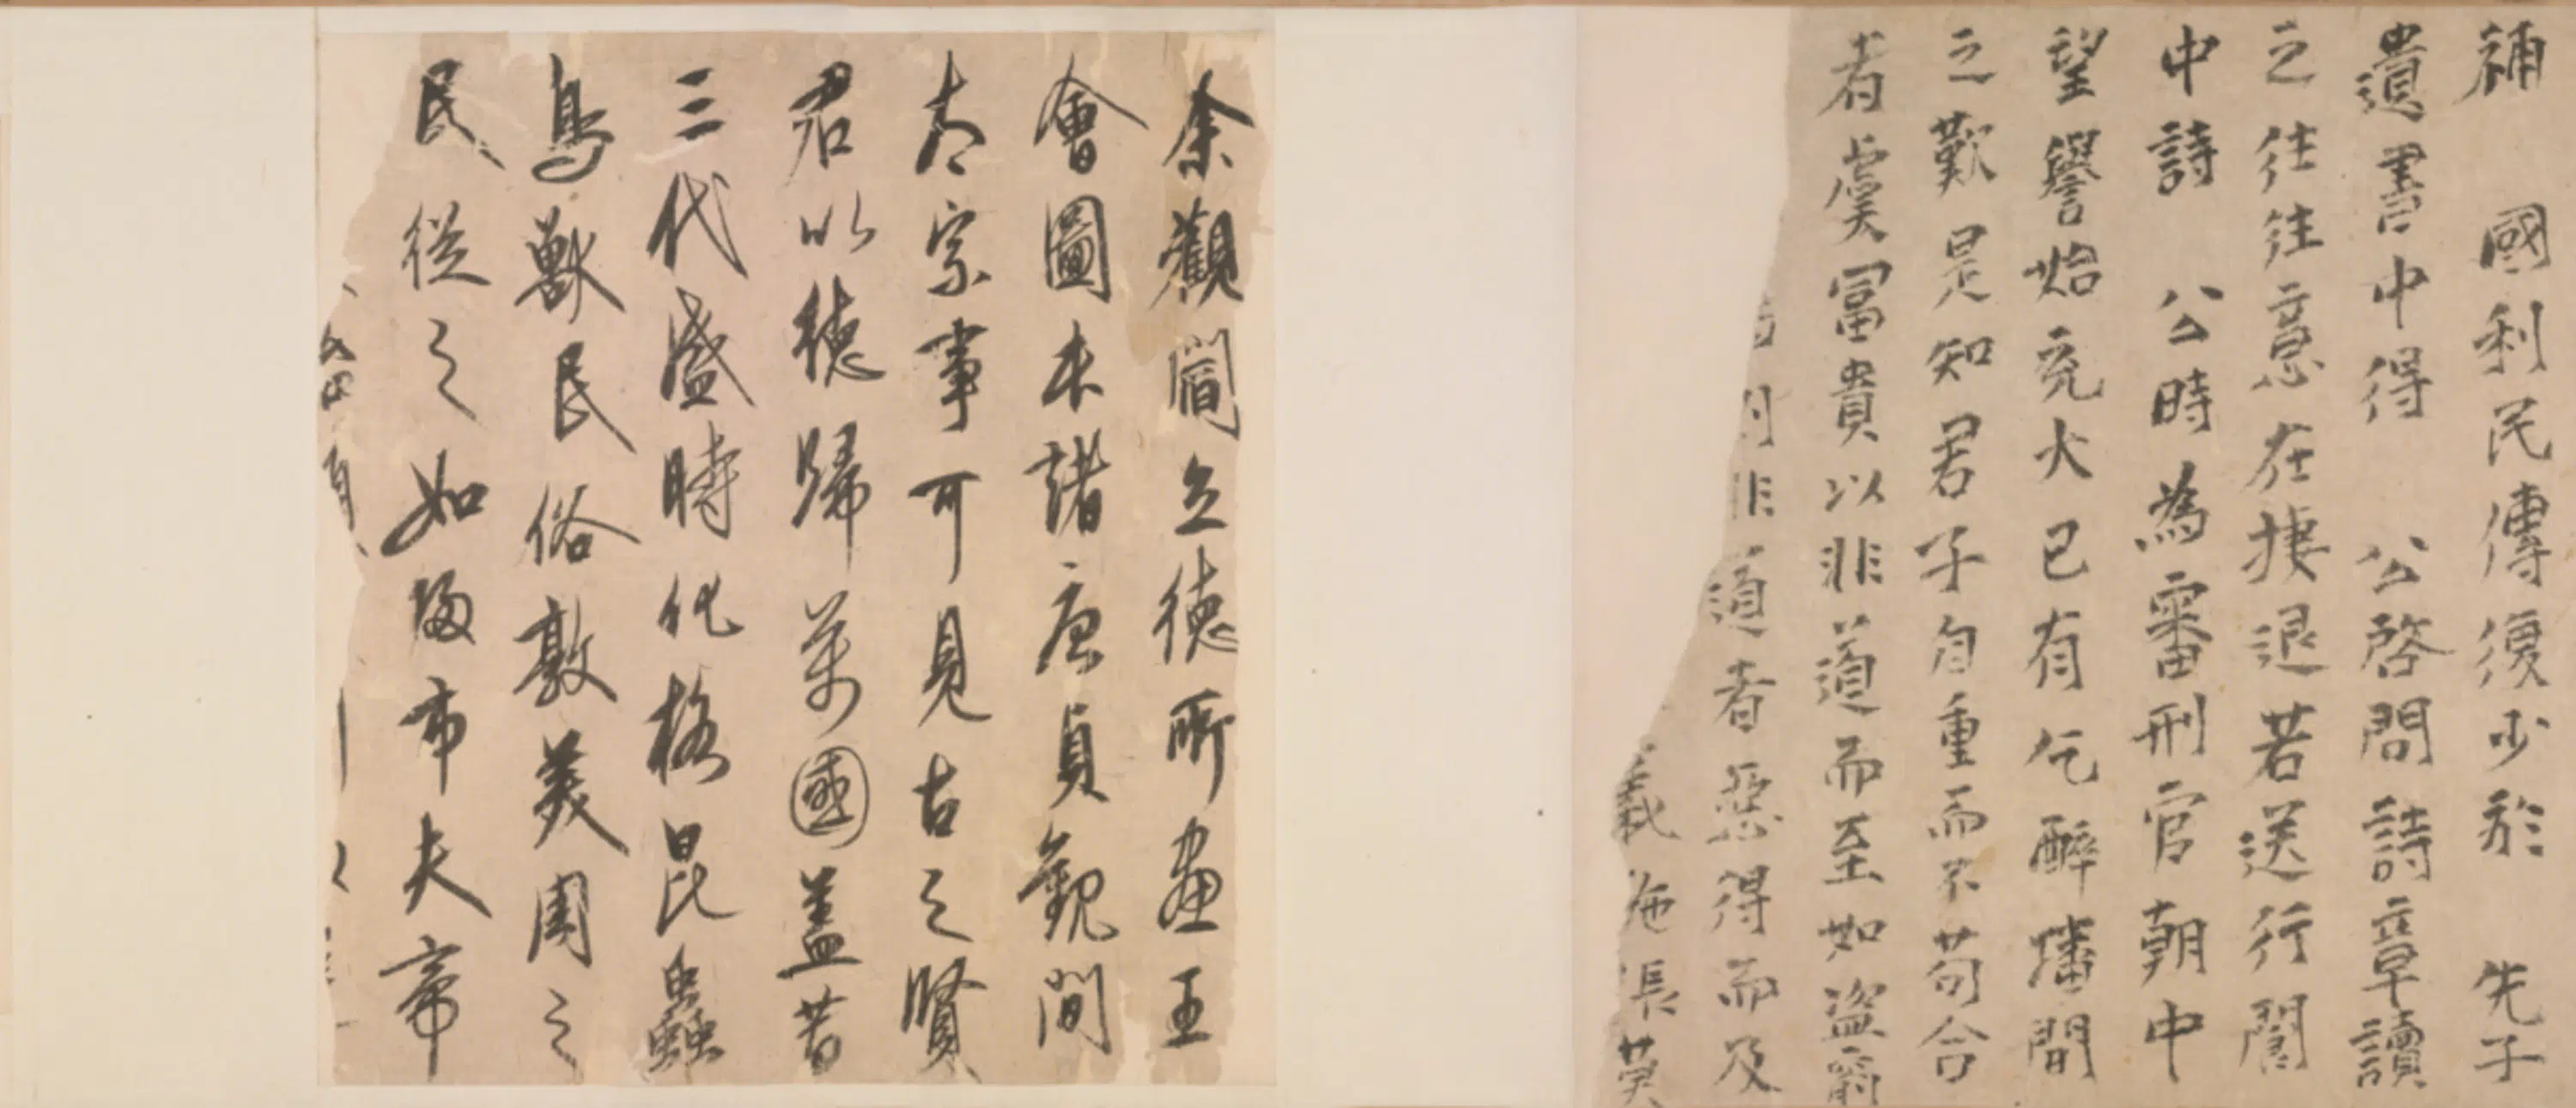 補 國利民傳復少於 先子
遺書中得 公啓問詩章讀
之往往意在㨗退若送行閣
中詩 公時為審刑官朝中
望譽始充大已有乞醉墦間
之歎是知君子自重而不苟合
者虞冨貴以非道而至如盜竊
非道者惡得而及
義施張莫
余觀閻立德所畫王
會圖未諸唐貞觀間
太宗事可見古之賢
君以德歸萬國蓋昔
三代盛時化格昆蟲
鳥獸民俗敦美周之
民從之如歸市夫帝